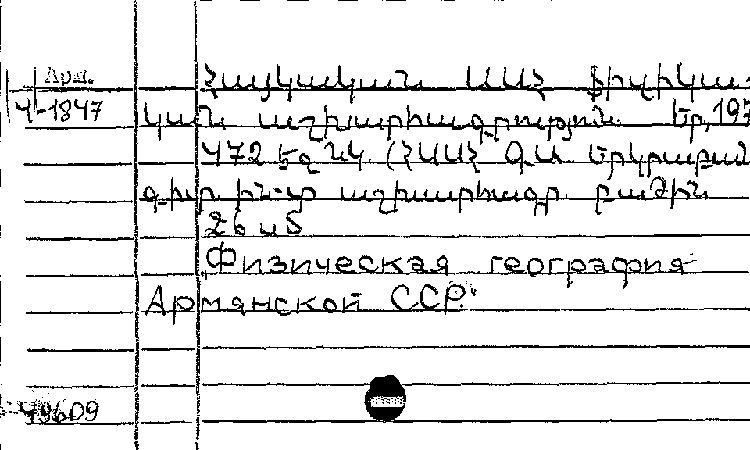 Арм.
Ч-1847
Հայկական ՍՍՀ ֆիզիկա-
կան աշխարհագրություն. Եր, 197
472 էջ նկ (ՀՍՍՀ ԳԱ երկրաբան
գիտ. ին-տ աշխարհագր. բաժին
26 սմ
Физическая география
Армянской ССР.
49609